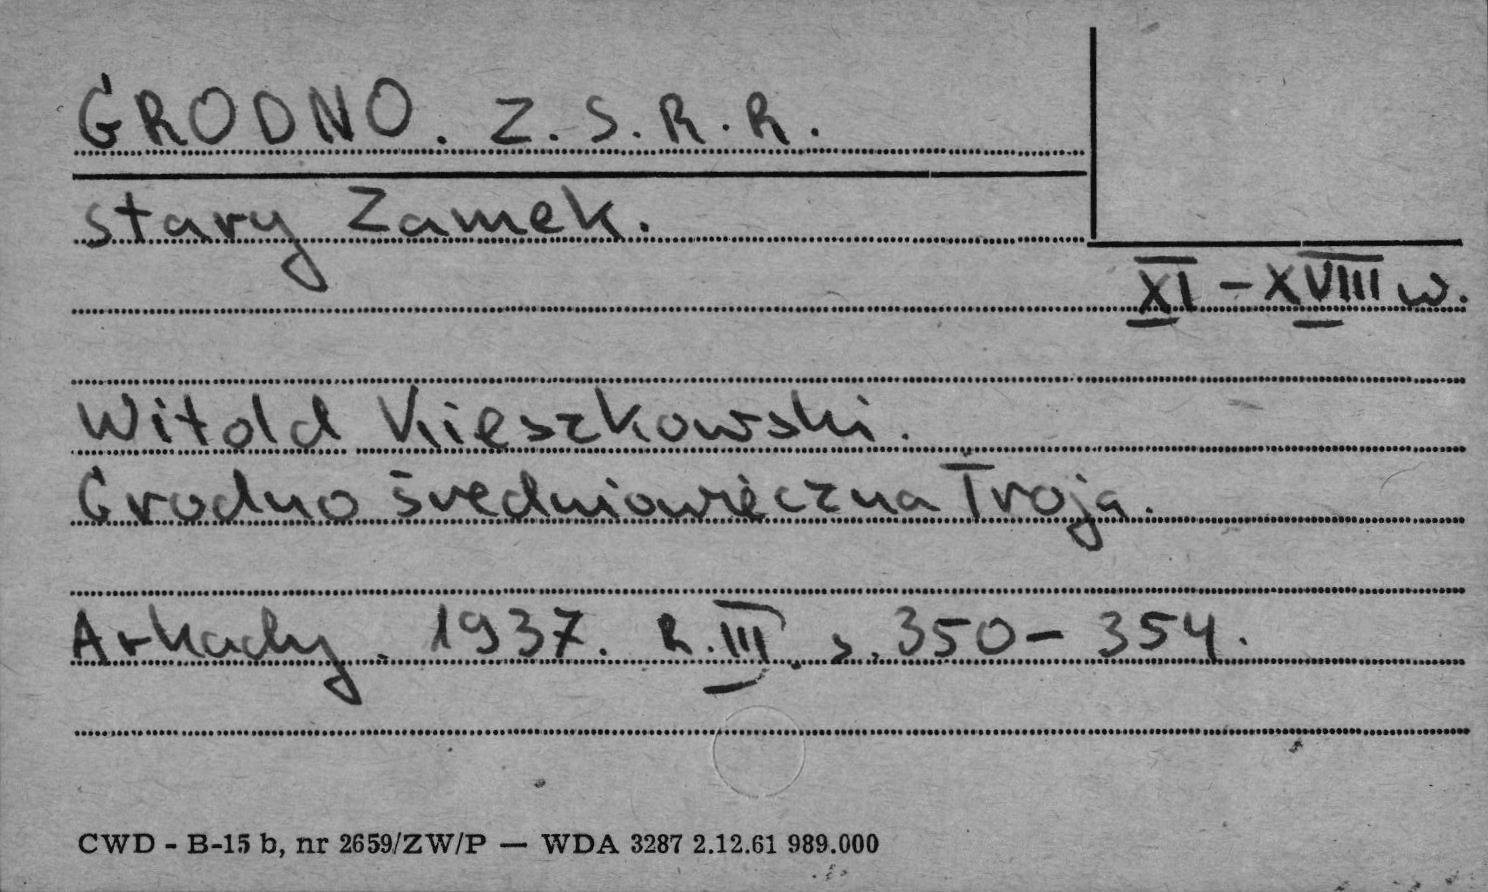 GRODNO. Z.S.R.R.
stary Zamek.
XI – XVIII w.
Witold Kieszkowski.
Grodno średniowieczna Troja.
Arkady. 1937. R. III. s. 350 – 354.
CWD - B-15 b, nr 2659/ZW/P — WDA 3287 2.12.61 989.000